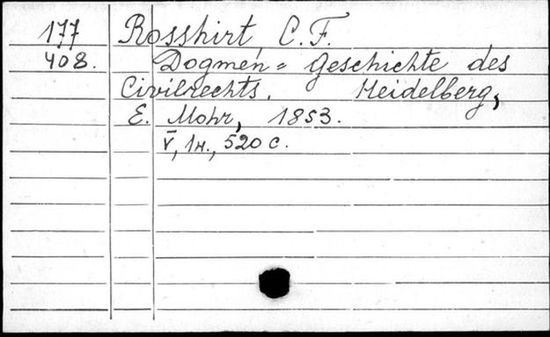 177 Rosshirt, C. F.
408. Dogmen = Geschichte des
Civilrechts. Heidelberg,
E. Mohr, 1853.
V, 1н., 520 с.